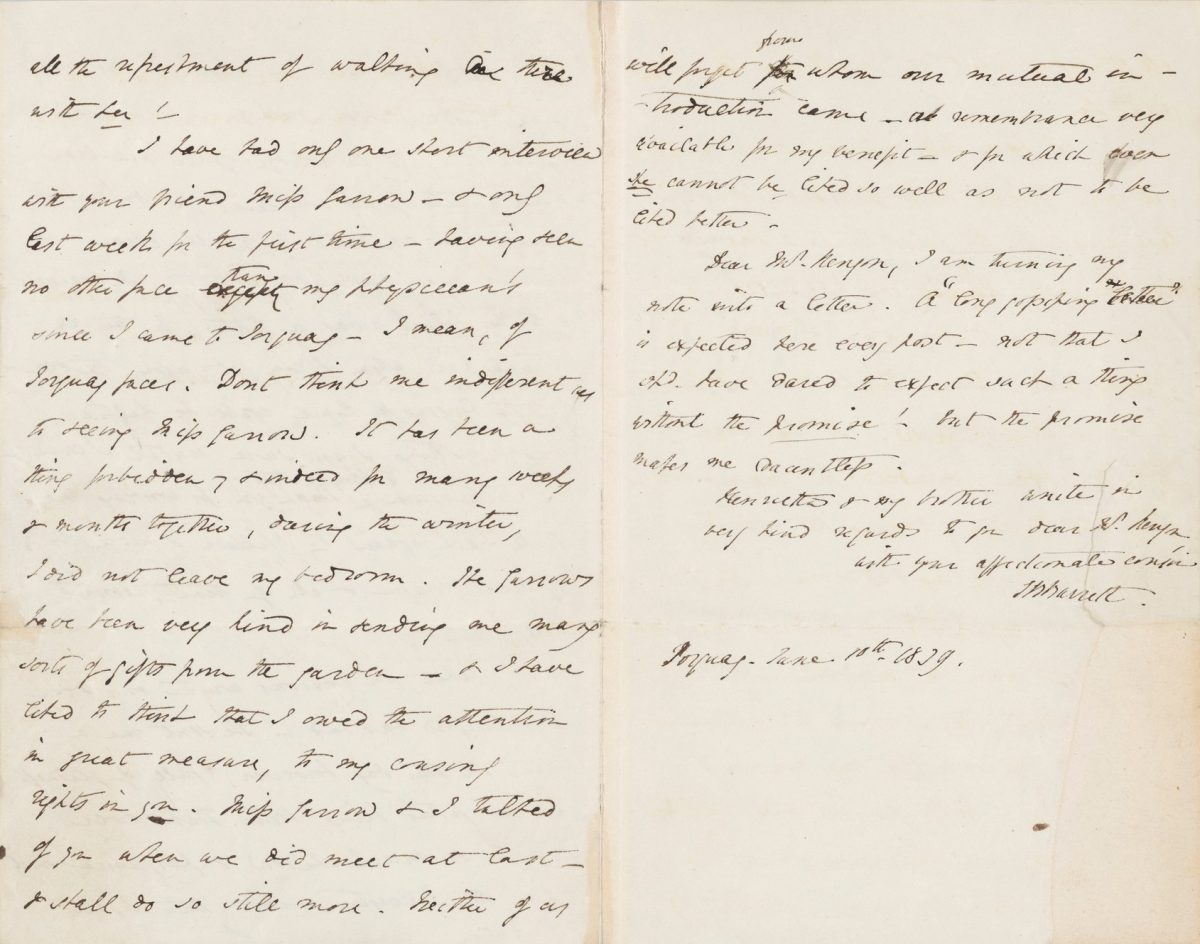 all the refreshment of walking there
with her! –
I have had only one short interview
with your friend Miss Garrow – & only
last week for the first time – having seen
no other face than my physician's
since I came to Torquay – I mean, of
Torquay faces. Dont think me indifferent as
to seeing Miss Garrow. It has been a
thing forbidden, & indeed for many weeks
& months together, during the winter,
I did not leave my bedroom. The Garrows
have been very kind in sending me many
sorts of gifts from the garden – & I have
liked to think that I owed the attention
in great measure, to my cousinly
rights in you. Miss Garrow & I talked
of you when we did meet at last –
& shall do so still more. Neither of us
will forget from whom our mutual in-
-troduction came – a remembrance very
available for my benefit – & for which even
she cannot be liked so well as not to be
liked better –
Dear Mr. Kenyon, I am turning my
note into a letter. A "long gossiping letter"
is expected here every post – not that I
shd. have dared to expect such a thing
without the promise! – but the promise
makes me dauntless.
Henrietta & my brother unite in
very kind regards to you dear Mr. Kenyon,
with your affectionate cousin
EBBarrett.
Torquay – June 10th. 1839.